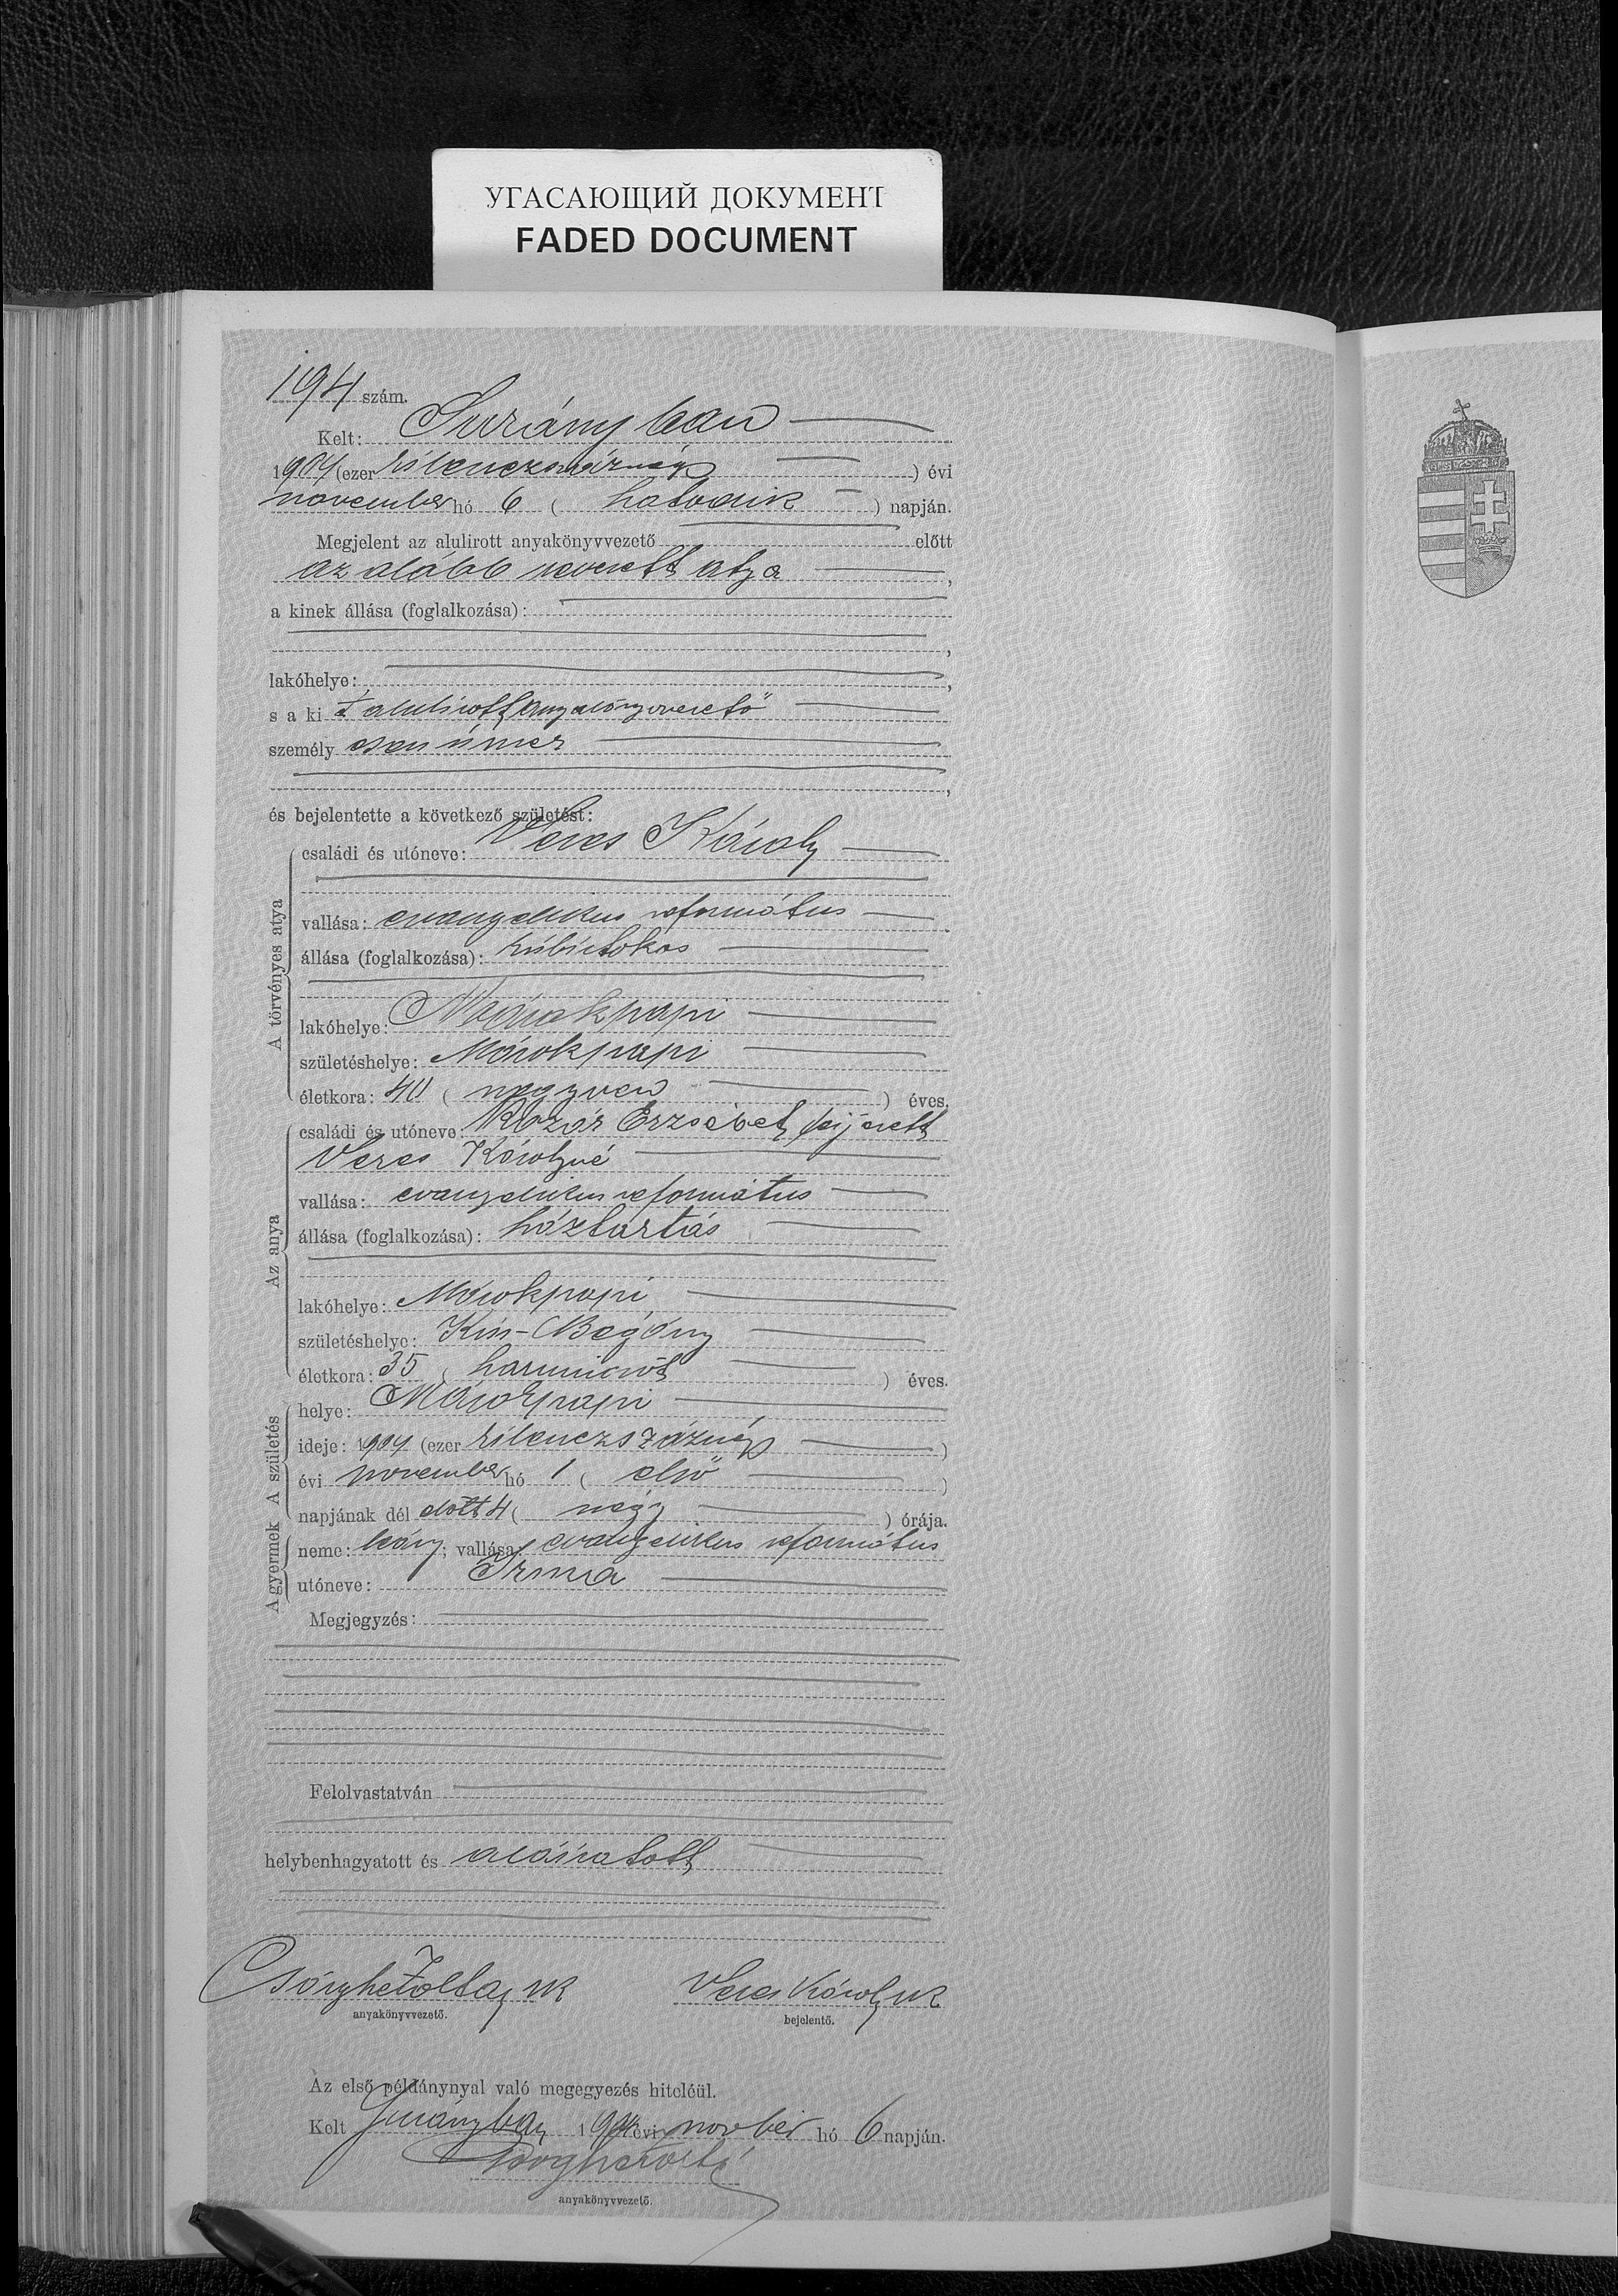 УГАСАЮЩИЙ ДОКУМЕНТ
FADED DOCUMENT
194 szám.
Kelt: Surányban
1904 (ezer kilenczszáznégy ) évi
november hó 6 ( hatodik ) napján.
Megjelent az alulirott anyakönyvvezető előtt
az alább nevezett atya ,
a kinek állása (foglalkozása):
,
lakóhelye: ,
s a ki alulirott anyakönyvvezető
személy
,
és bejelentette a következő születést:
A törvényes atya
családi és utóneve: Veres Károly
vallása: evangelikus református
állása (foglalkozása): kisbirtokos
lakóhelye: Márokpapi
születéshelye: Márokpapi
életkora: 40 ( negyven ) éves.
Az anya
családi és utóneve: Erzsébet férjezett
Veres Károlyné
vallása: evangelikus református
állása (foglalkozása): háztartás
lakóhelye: Márokpapi
születéshelye: Kis-Begány
életkora: 35 ( harminczöt ) éves.
A születés
helye: Márokpapi
ideje: 1904 (ezer kilenczszáznégy )
évi november hó 1 ( első )
napjának dél előtt 4 ( négy ) órája.
A gyermek
neme: leány; vallása: evangelikus református
utóneve: Irma
Megjegyzés:
Felolvastatván
helybenhagyatott és aláiratott
Csörghe Zoltán sk Veres Károly sk
anyakönyvvezető. bejelentő.
Az első példánynyal való megegyezés hiteléül.
Kelt Surányban 1904 évi novber hó 6 napján.
anyakönyvvezető.